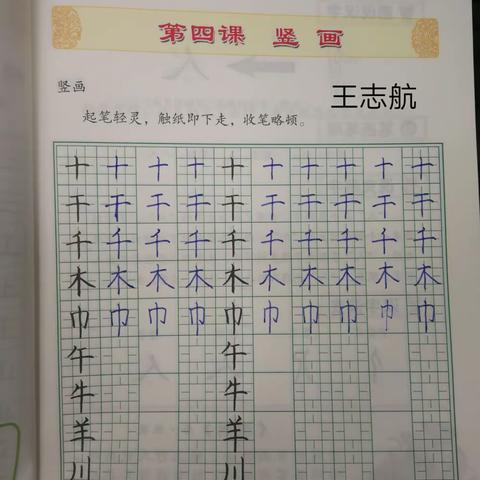 第四课 竖画
竖画
王志航
起笔轻灵，触纸即下走，收笔略顿。
十十十十十十十十十十
干干干干干干干干干干
千千千千千千千千千千
木木木木木木木木木木
巾巾巾巾巾巾巾巾巾巾
午 午
牛 牛
羊 羊
川 川